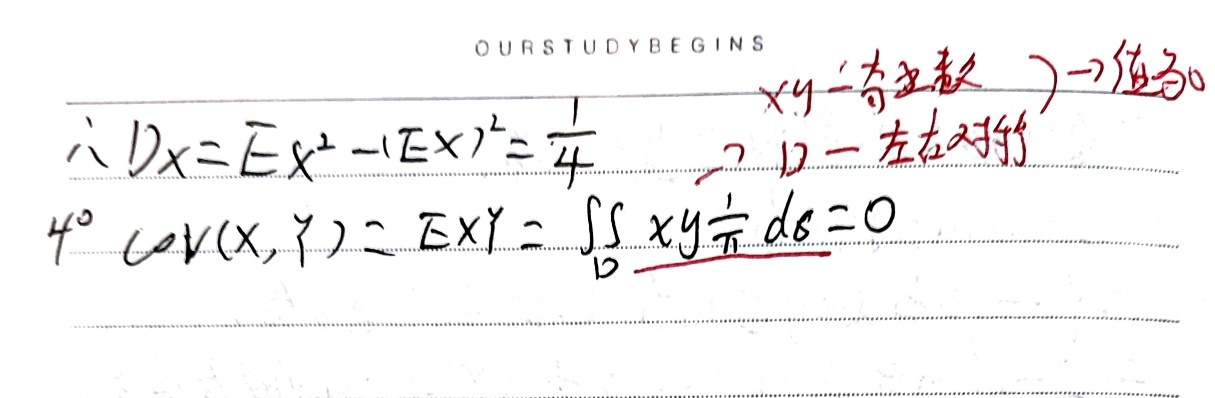 OURSTUDYBEGINS
xy — 奇函数 ) → 值为0
∴ DX = EX² - (EX)² = 1/4
→ D — 左右对称
4° cov(X, Y) = EXY = ∬_D xy 1/π dσ = 0